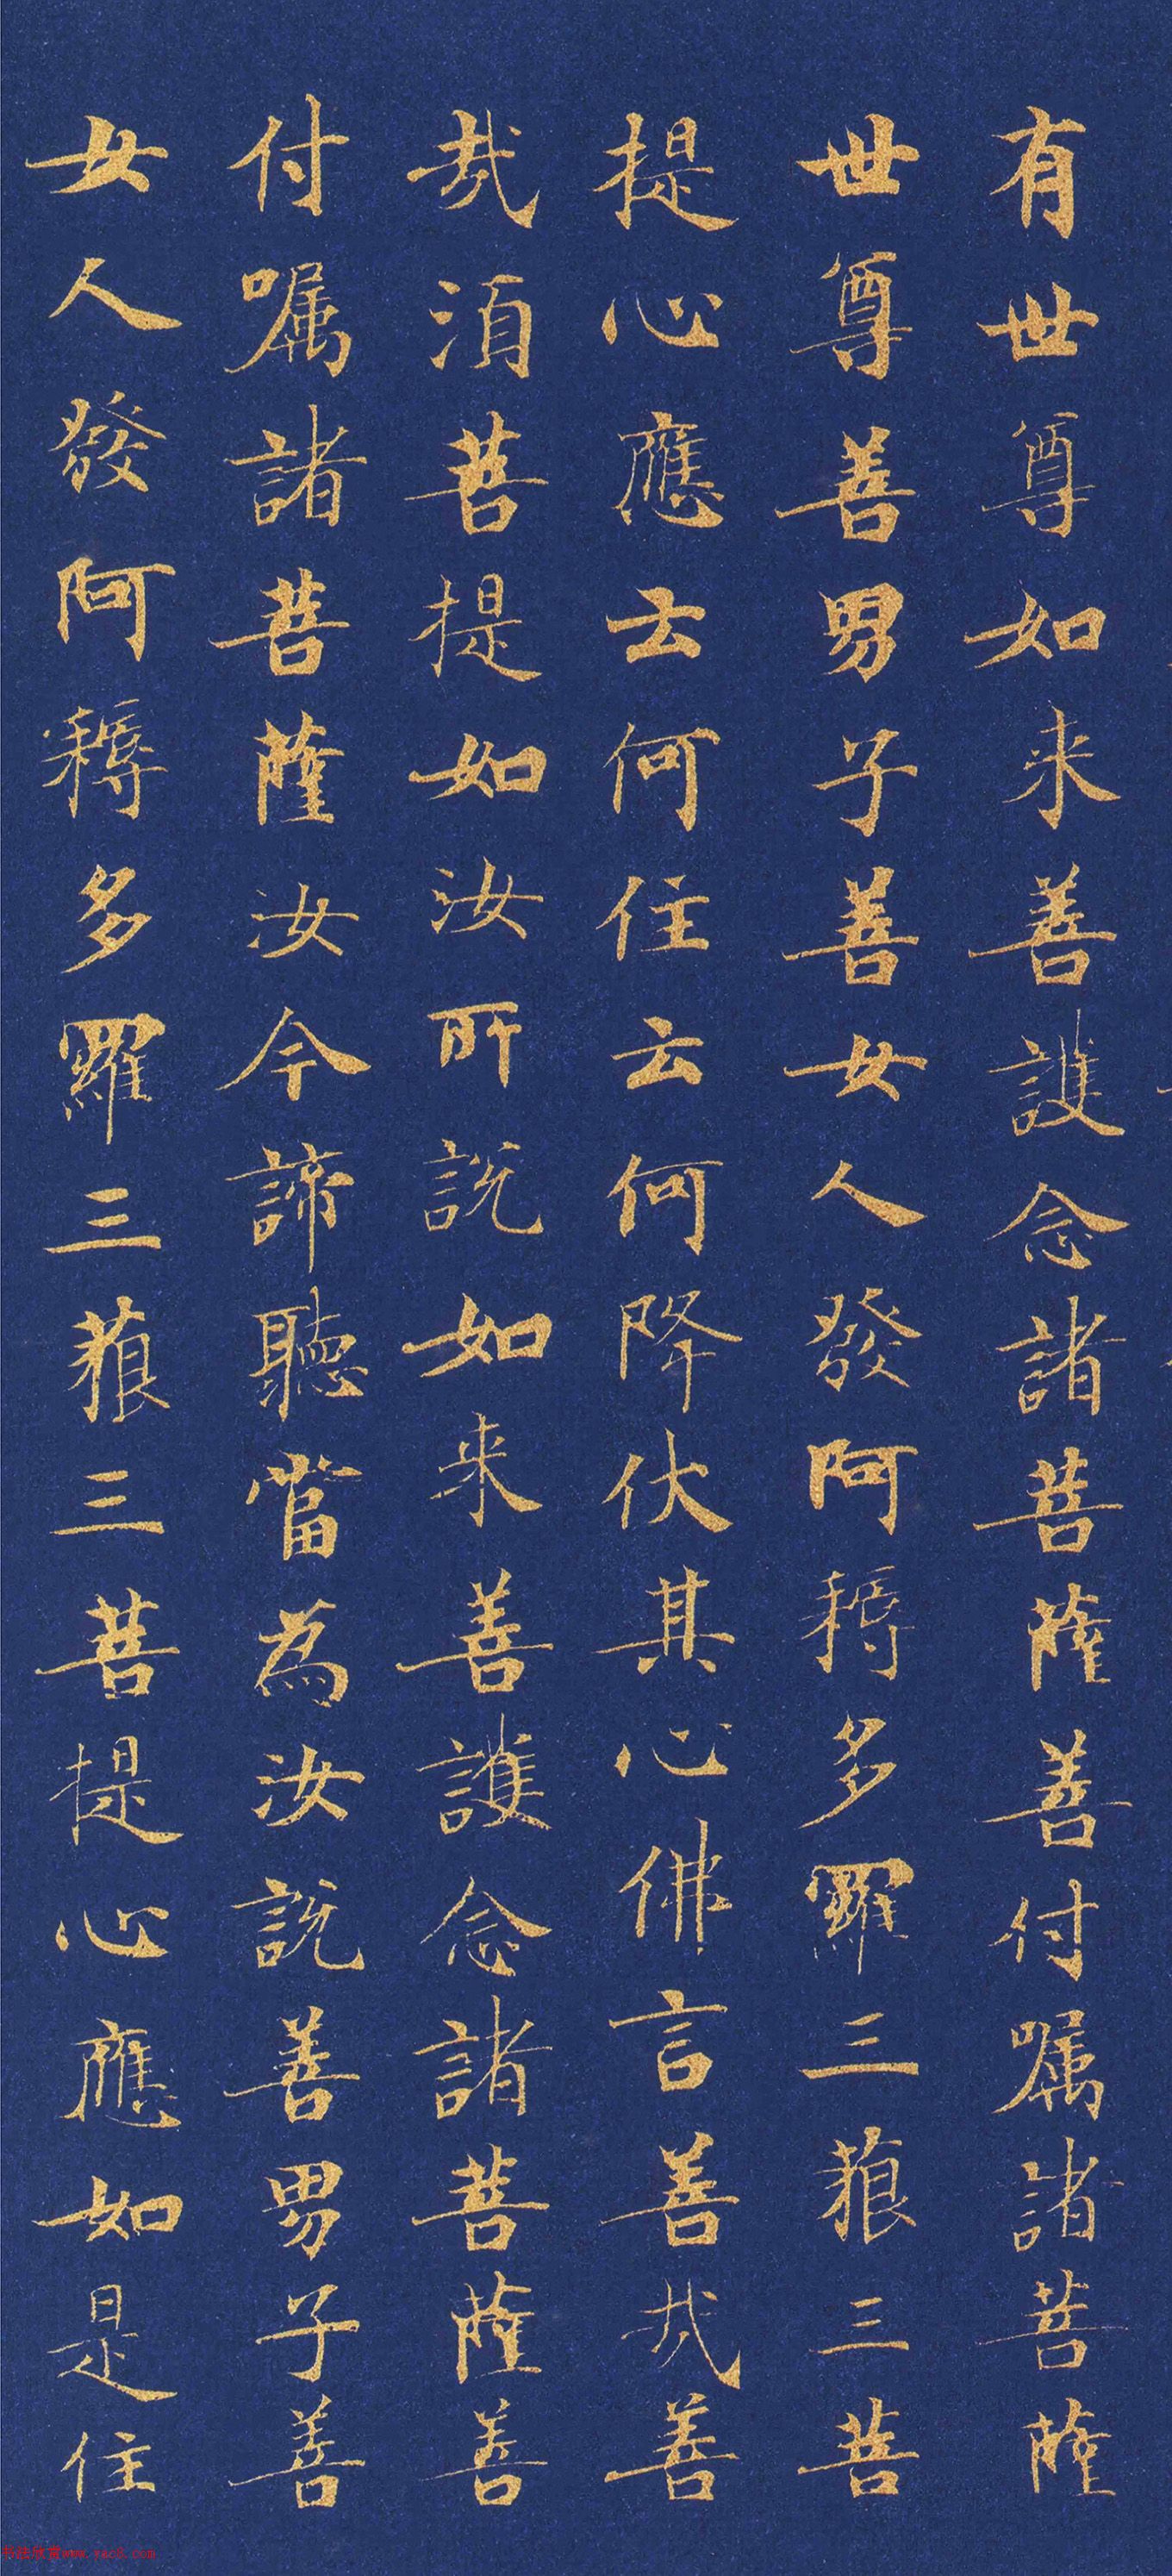 有世尊如来善護念諸菩薩善付嘱諸菩薩
世尊善男子善女人發阿耨多羅三藐三菩
提心應云何住云何降伏其心佛言善哉善
哉須菩提如汝所說如来善護念諸菩薩善
付嘱諸菩薩汝今諦聽當為汝說善男子善
女人發阿耨多羅三藐三菩提心應如是住
书法欣赏www.yac8.com